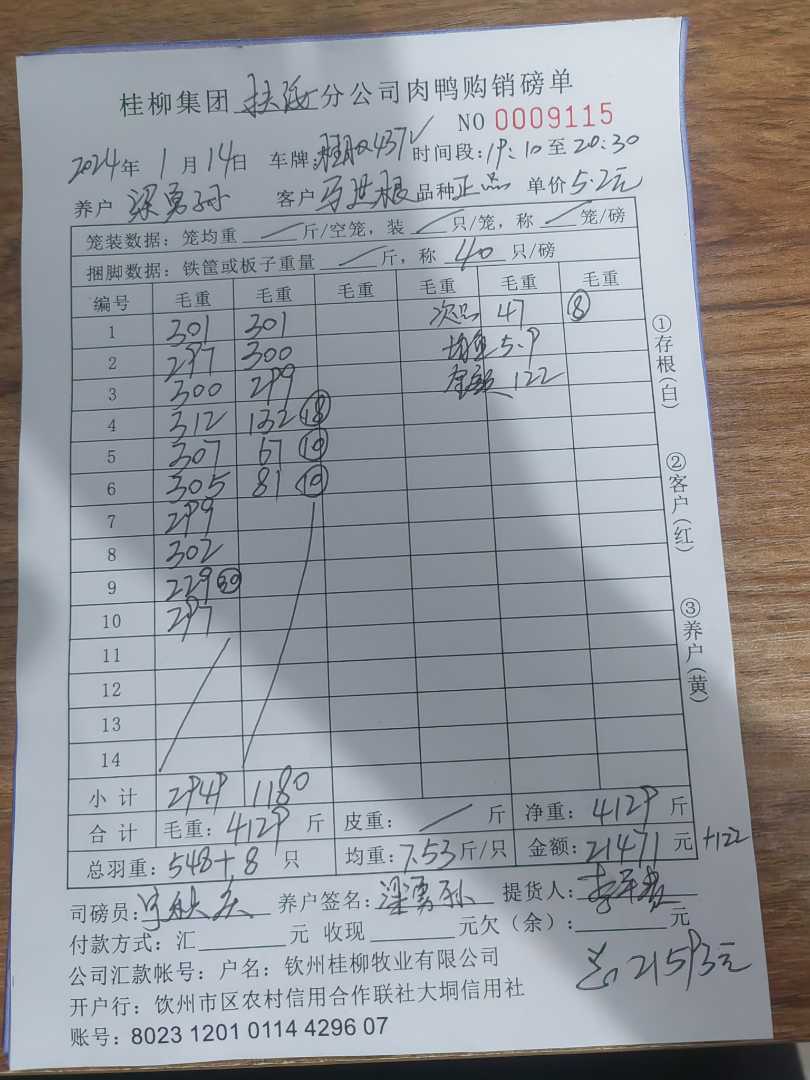 桂柳集团 分公司肉鸭购销磅单
NO 0009115
2024年 1 月 14日 车牌: 437 时间段:19:10至20:30
养户 梁勇孙 客户 根 品种 正品 单价 5.2元
笼装数据:笼均重 / 斤/空笼,装 / 只/笼,称 / 笼/磅
捆脚数据:铁筐或板子重量 / 斤,称 40 只/磅
编号 毛重 毛重 毛重 毛重 毛重 毛重
1 301 301 次品 47 ⑧
2 297 300 均重 5.9
3 300 299 金额 122
4 312 132 ⑱
5 307 67 ⑩
6 305 81 ⑩
7 299
8 302
9 229 ㉚
10 297
11
12
13
14
小计 2949 1180
合计 毛重:4129 斤 皮重: / 斤 净重:4129 斤
总羽重:548+8 只 均重:7.53斤/只 金额:21471 元 +122
司磅员: 养户签名:梁勇孙 提货人:
付款方式:汇 元 收现 元欠(余): 元
公司汇款帐号:户名:钦州桂柳牧业有限公司
总 21593元
开户行:钦州市区农村信用合作联社大垌信用社
账号:8023 1201 0114 4296 07
①存根(白)
②客户(红)
③养户(黄)